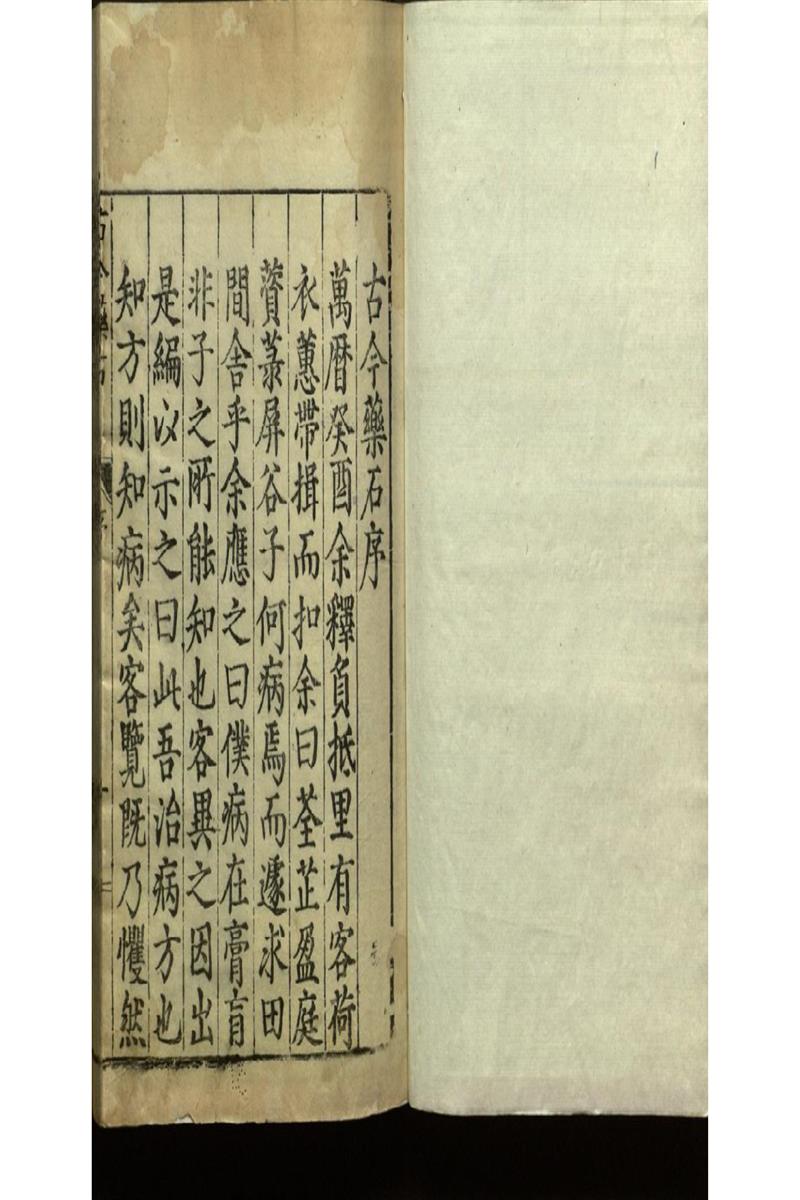 古今藥石序
萬曆癸酉余釋負抵里有客荷
衣蕙帶揖而扣余曰荃芷盈庭
薋菉屏谷子何病焉而遽求田
間舍乎余應之曰僕病在膏肓
非子之所能知也客異之因出
是編以示之曰此吾治病方也
知方則知病矣客覽既乃懼然
古今藥石
序